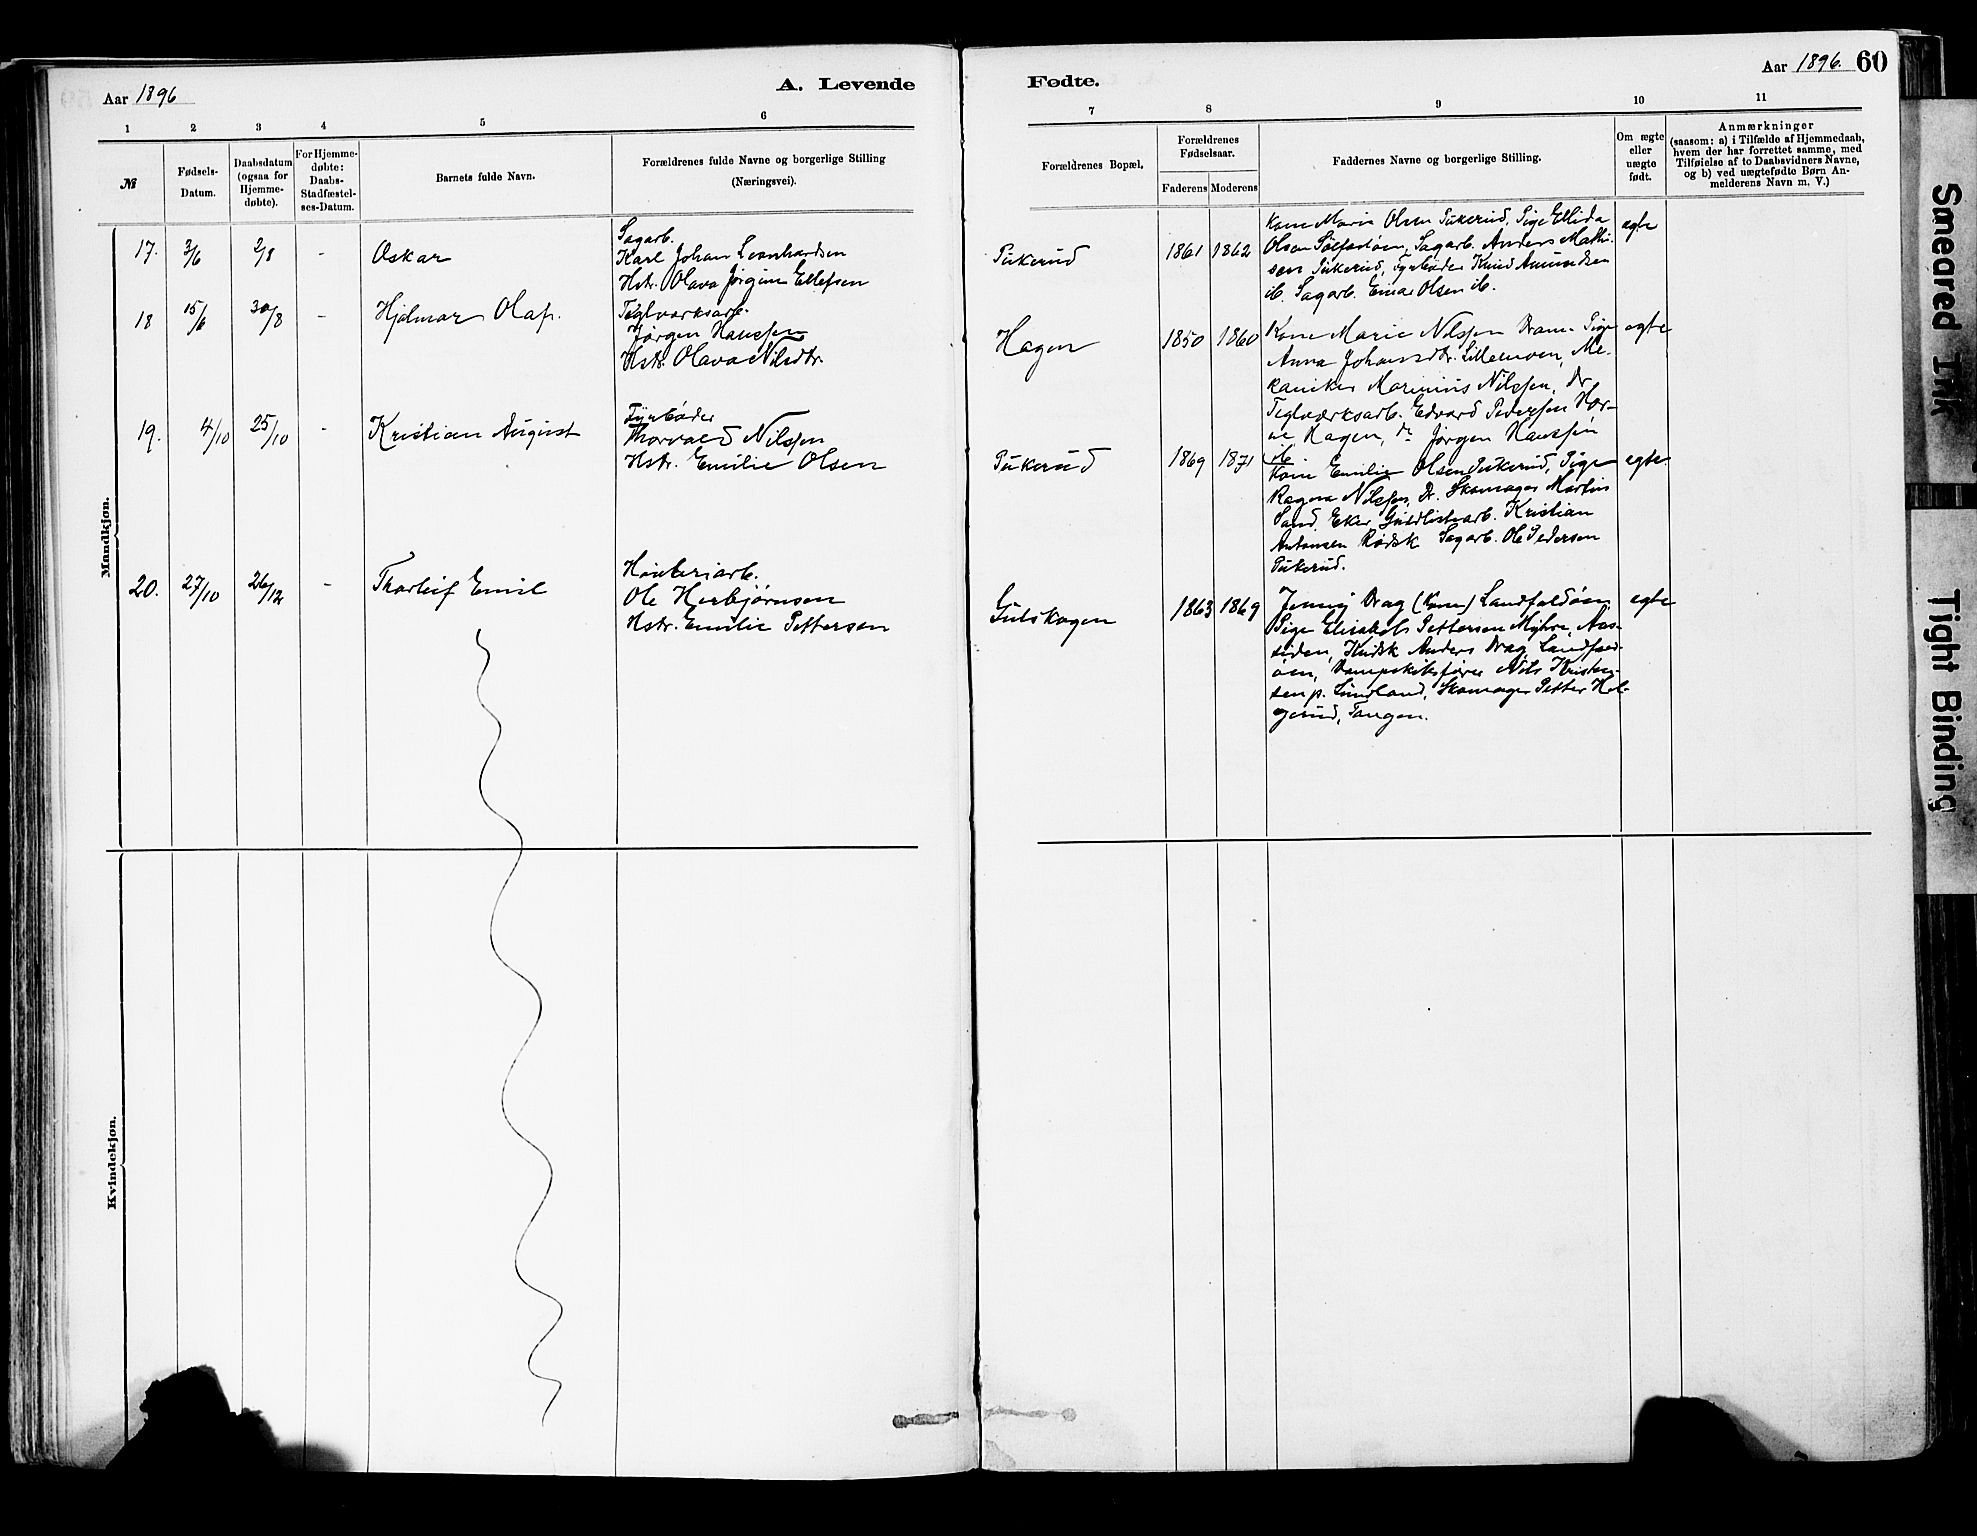 Aar 1896
A. Levende
1 2 3 4 5 6
№
Fødsels-
Datum.
Daabsdatum
(ogsaa for
Hjemme-
døbte).
For Hjemme-
døbte:
Daabs-
Stadfæstel-
ses-Datum.
Barnets fulde Navn.
Forældrenes fulde Navne og borgerlige Stilling
(Næringsvei).
Mandkjøn.
17. 3/6 2/8 - Oskar
Sagarb.
Karl Johan Leonhardsen
Hstr. Olava Jørgine Ellefsen
18 15/6 30/8 - Hjalmar Olaf.
Teglværksarb.
Jørgen Hanssen
Hstr. Olava Nilsdtr.
19. 4/10 25/10 - Kristian August
Fyrbøder
Thorvald Nilssen
Hstr. Emilie Olsen
20. 27/10 26/12 - Thorleif Emil
Ole Herbjørnsen
Hstr. Emilie Pettersen
Kvindekjøn.
Fødte.
Aar 1896. 60
7 8 9 10 11
Forældrenes Bopæl,
Forældrenes
Fødselsaar.
Faderens Moderens
Faddernes Navne og borgerlige Stilling.
Om ægte
eller
uægte
født.
Anmærkninger
(saasom: a) i Tilfælde af Hjemmedaab,
hvem der har forrettet samme, med
Tilføielse af to Daabsvidners Navne,
og b) ved uægtefødte Børn An-
melderens Navn m. V.)
Pukerud 1861 1862
Kone Maria Olsen Pukerud, Pige Ellida
Olsen Sølfastøen, Sagarb. Anders Mathi-
sen Pukerud, Fyrbøder Knud Amundsen
ib. Sagarb. Einar Olsen ib.
egte
Hagen 1850 1860
Kone Marie Nilssen Dram. Pige
Anna Johansdtr. Lillemoen, Me-
kaniker Marinius Nilssen, Dr
Teglværksarb. Edvard Pedersen Hor-
ne Hagen, Dr Jørgen Hanssen
ib.
egte
Pukerud 1869 1871
Kone Emilie Olsen Pukerud, Pige
Ragna Nilssen, Dr. Skomager Martin
Sand, Eker, Guldlistearb. Kristian
Antonsen Rødsk Sagarb. Ole Pedersen
Pukerud.
egte.
Gulskogen 1863 1869
Jenny Drag (Kone) Landfaldøen
Pige Elisabeth Pettersen Myhre, Aas-
siden, Kudsk Anders Drag, Landfald-
øen, Dampskibsfører Nils Kristen-
sen p. Sundland, Skomager Petter Hol-
gerud, Tangen.
egte
Smeared Ink
Tight Binding